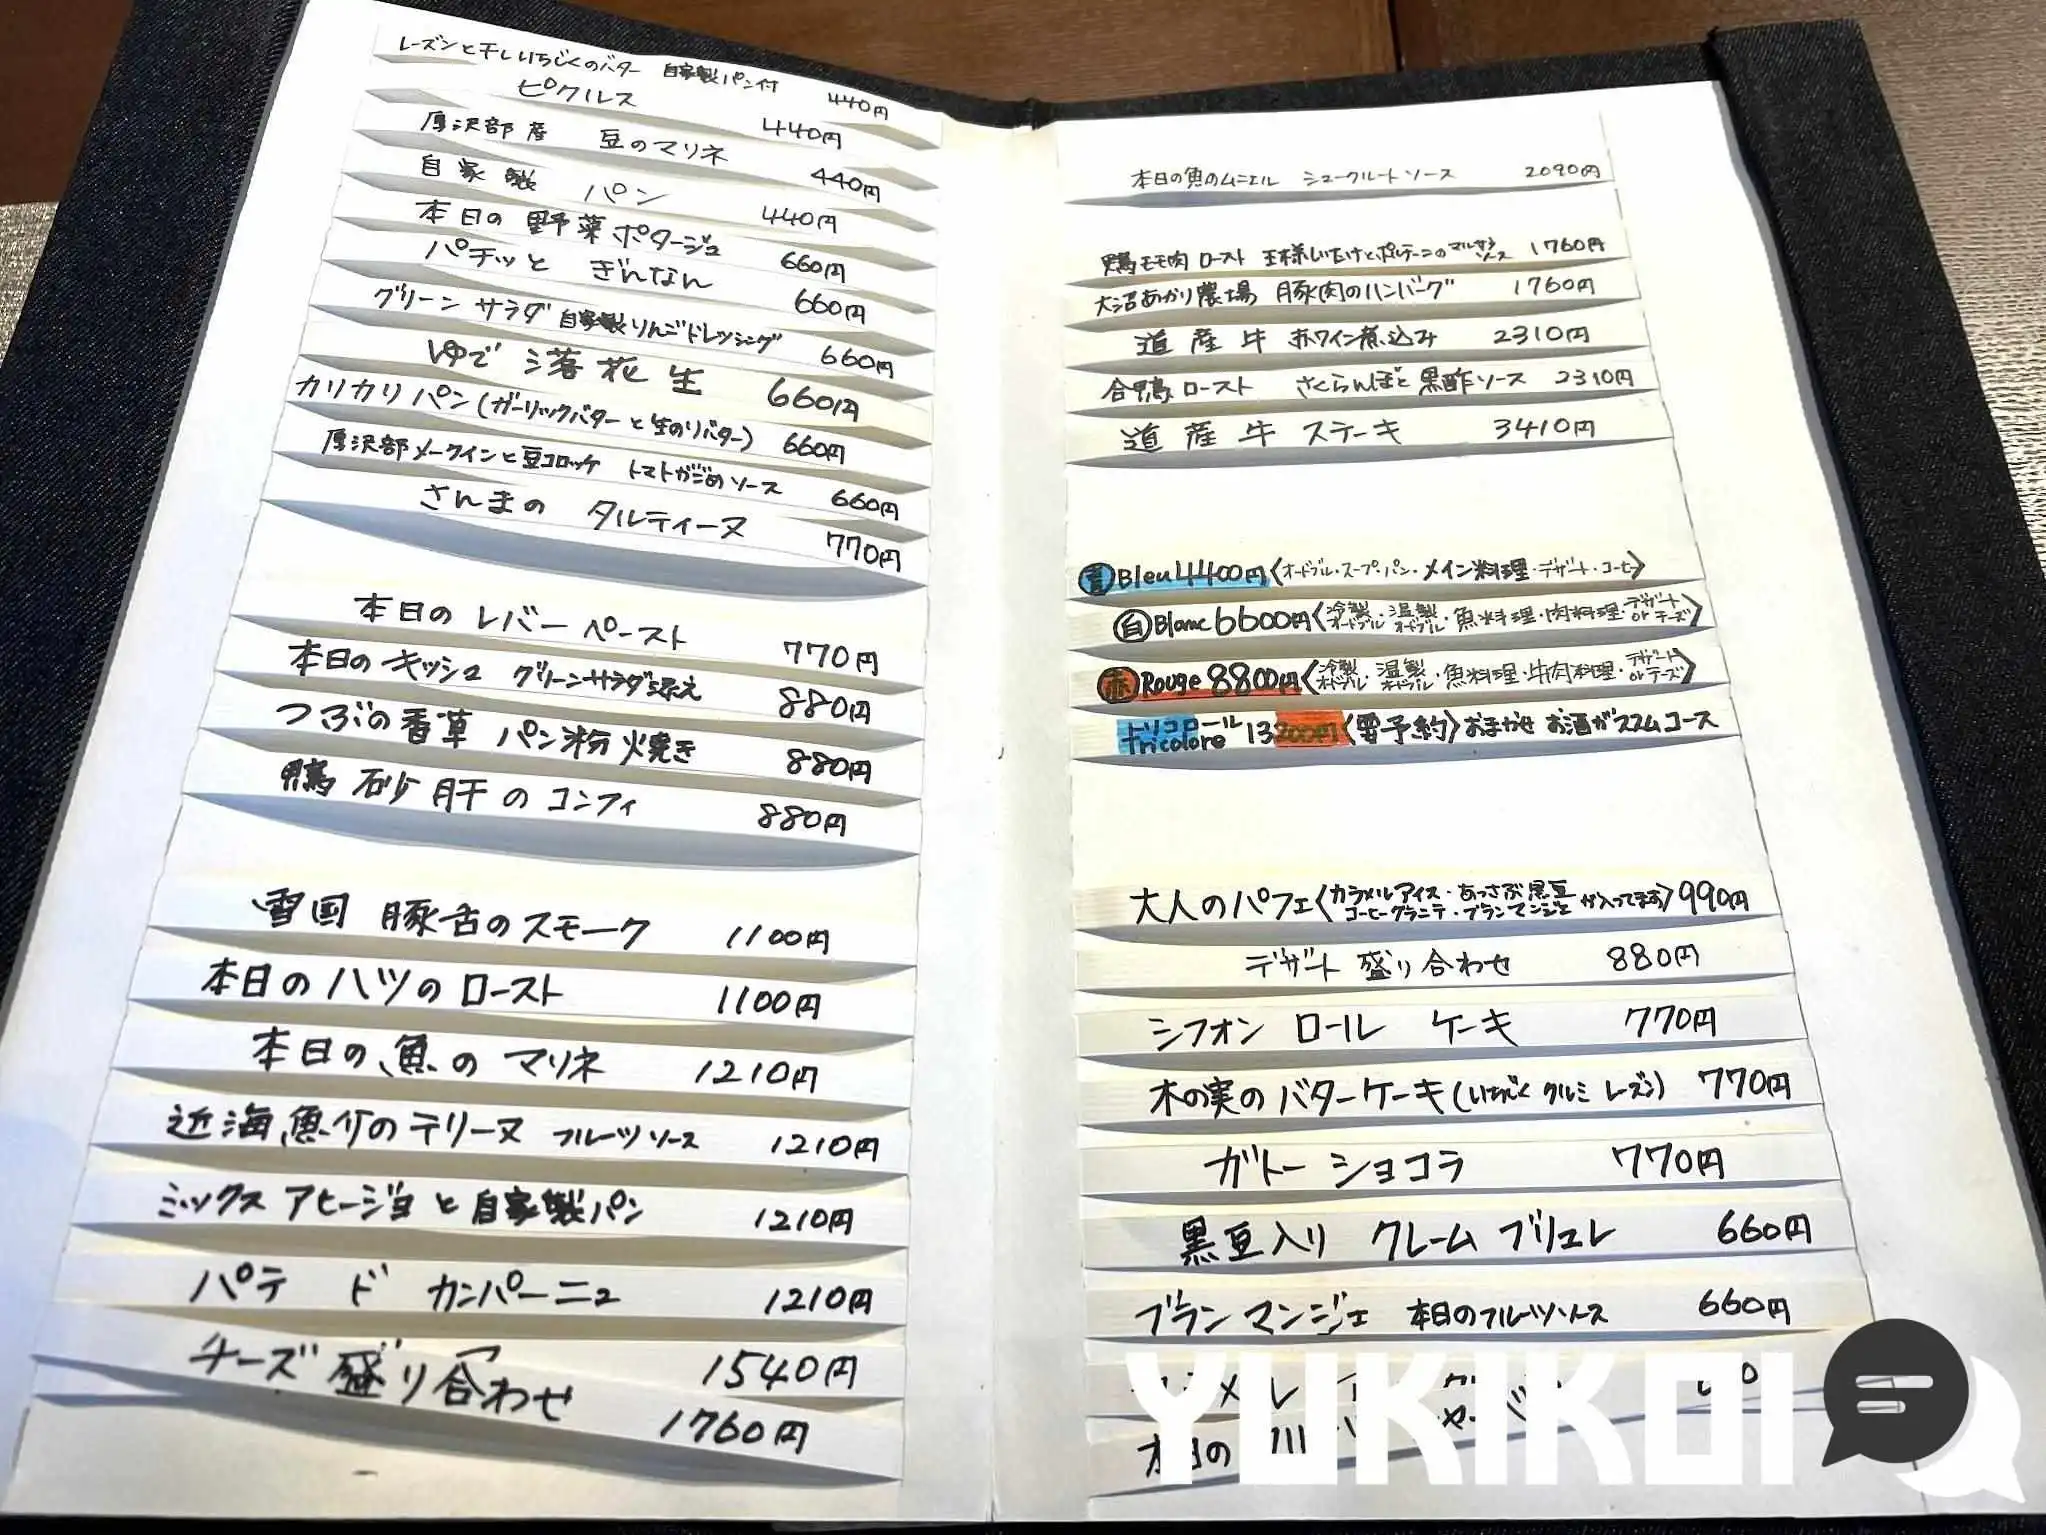 レーズンと干しいちじくのバター 自家製パン付 440円
ピクルス 440円
厚沢部産 豆のマリネ 440円
自家製 パン 440円
本日の 野菜ポタージュ 660円
パチッと ぎんなん 660円
グリーン サラダ 自家製りんごドレッシング 660円
ゆで 落花生 660円
カリカリパン(ガーリックバターと生のりバター) 660円
厚沢部メークインと豆コロッケ トマトがごめソース 660円
さんまの タルティーヌ 770円
本日の レバーペースト 770円
本日の キッシュ グリーンサラダ添え 880円
つぶの香草 パン粉焼き 880円
鴨砂肝の コンフィ 880円
雪国 豚舌のスモーク 1100円
本日のハツのロースト 1100円
本日の魚の マリネ 1210円
近海魚介のテリーヌ フルーツソース 1210円
ミックス アヒージョと自家製パン 1210円
パテ ド カンパーニュ 1210円
1540円
チーズ盛り合わせ 1760円
本日の魚のムニエル シュークルートソース 2090円
鴨モモ肉ロースト 王様しいたけとポルチーニのマルサラソース 1760円
大沼あかり農場 豚肉のハンバーグ 1760円
道産牛 赤ワイン煮込み 2310円
合鴨ロースト さくらんぼと黒酢ソース 2310円
道産牛 ステーキ 3410円
青 Bleu 4400円〈オードブル・スープ・パン・メイン料理・デザート・コーヒー〉
白 Blanc 6600円〈冷製オードブル・温製オードブル・魚料理・肉料理・デザート or チーズ〉
赤 Rouge 8800円〈冷製オードブル・温製オードブル・魚料理・牛肉料理・デザート or チーズ〉
トリコロール tricolore 13200円〈要予約〉おまかせ お酒がススムコース
大人のパフェ〈カラメルアイス・あっさぶ黒豆 コーヒーグラニテ・ブランマンジェ が入ってます〉990円
デザート 盛り合わせ 880円
シフォン ロール ケーキ 770円
木の実のバターケーキ(いちじく クルミ レーズン) 770円
ガトー ショコラ 770円
黒豆入り クレームブリュレ 660円
ブランマンジェ 本日のフルーツソース 660円
本日の
YUKIKOI